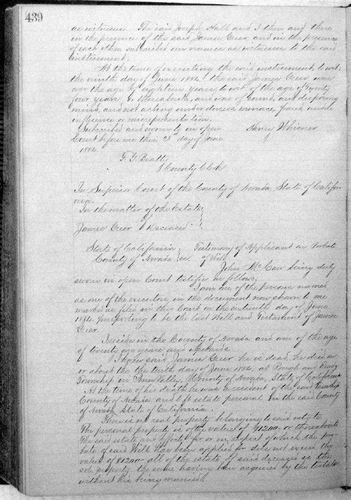 439
as witness. The said Joseph Hall and I then and there
in the presence of the said James Cior and in the presence
of each other subscribed our names as witnesses to the said
instrument.
At the time of executing the said instrument, to wit,
the ninth day of June 1884, the said James Cior was
over the age of eighteen years to wit of the age of
years or thereabouts, and was of sound and disposing
mind, and not acting under duress, menace, fraud, undue
influence or misrepresentation.
Subscribed and sworn to in open
Court before me this 23 day of June
1884
F. G. Beatty
County Clerk
In Superior Court of the County of Nevada, State of Califor
nia
In the matter of the Estate
of
James Cior Deceased
State of California Testimony of Applicant on Probate
County of Nevada of Will
John Mc being duly
sworn in open Court testifies as follows
I am one of the persons named
as one of the executors in the document now shown to me
marked as filed in this Court on the day of June
1884 purporting to be the last Will and Testament of James
Cior.
I reside in the County of Nevada and am of the
age of years and upwards.
I knew said James Cior now dead. He died on
or about the the tenth day of June 1884, at Rough and Ready
Township in County of Nevada, State of California
At the time of his death he was a resident of the same Township
County of Nevada and left estate personal in the said County
of Nevada State of California.
There is no real property belonging to said estate
The personal property is of the value of $1200 or thereabouts
The said estate and effects for or in respect of which the pro
bate of said Will has been applied for do not exceed the
value of $1200. All of the estate of said deceased is
property the same having been acquired by the testator
without his being married